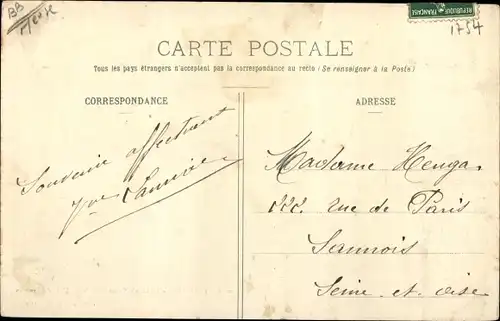 BB
1754
RÉPUBLIQUE FRANÇAISE
CARTE POSTALE
Tous les pays étrangers n'acceptent pas la correspondance au recto (Se renseigner à la Poste)
CORRESPONDANCE
ADRESSE
Souvenir affectueux
Madame
rue de Paris
Sannois
Seine et oise